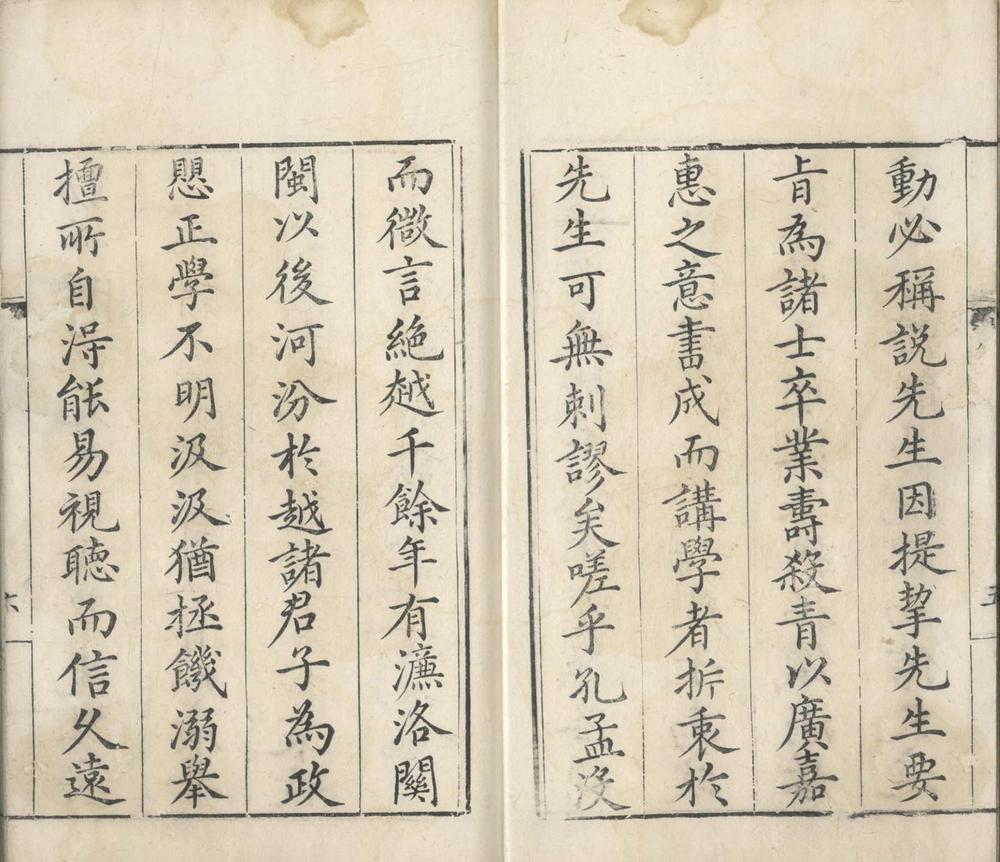 動必稱說先生因提挈先生要
㫖為諸士卒業壽殺青以廣嘉
惠之意書成而講學者折衷於
先生可無刺謬矣嗟乎孔孟沒
而微言絕越千餘年有濂洛關
閩以後河汾於越諸君子為政
懸正學不明汲汲猶拯饑溺舉
擅所自淂能易視聽而信久遠
五
六